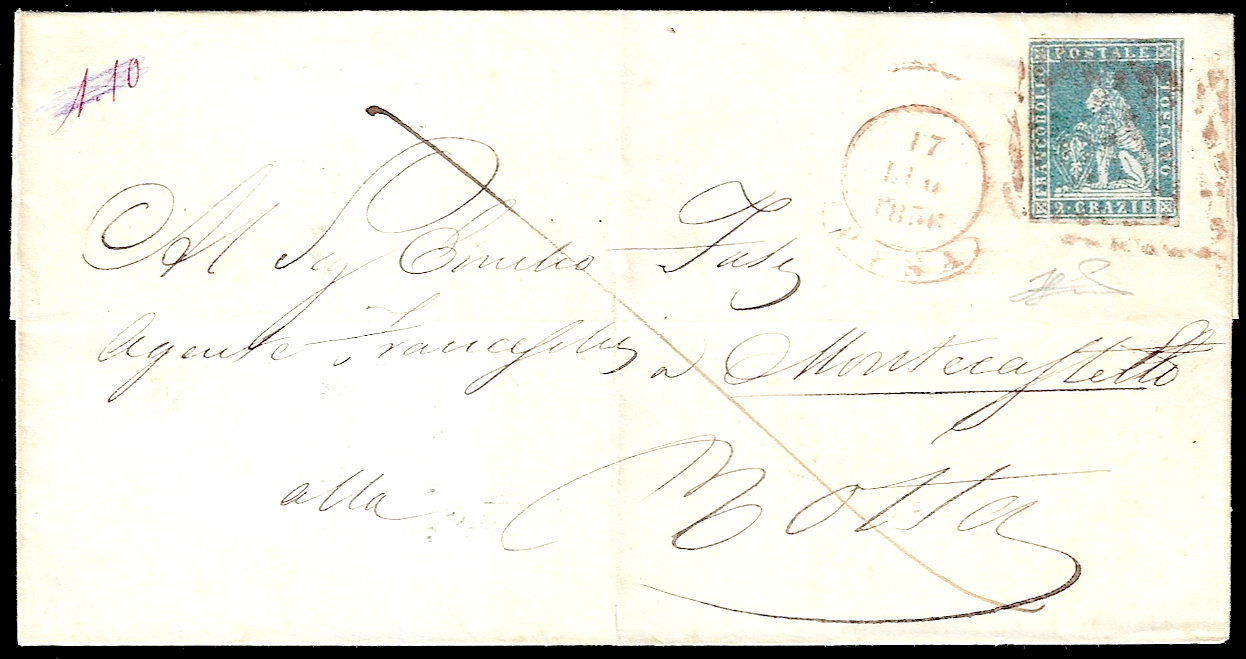 1.10
FRANCOBOLLO POSTALE TOSCANO
2 · CRAZIE
17
LUG
1856
PISA
Al Sig Emilio
Agente Franceschi a Montecastello
alla Rotta